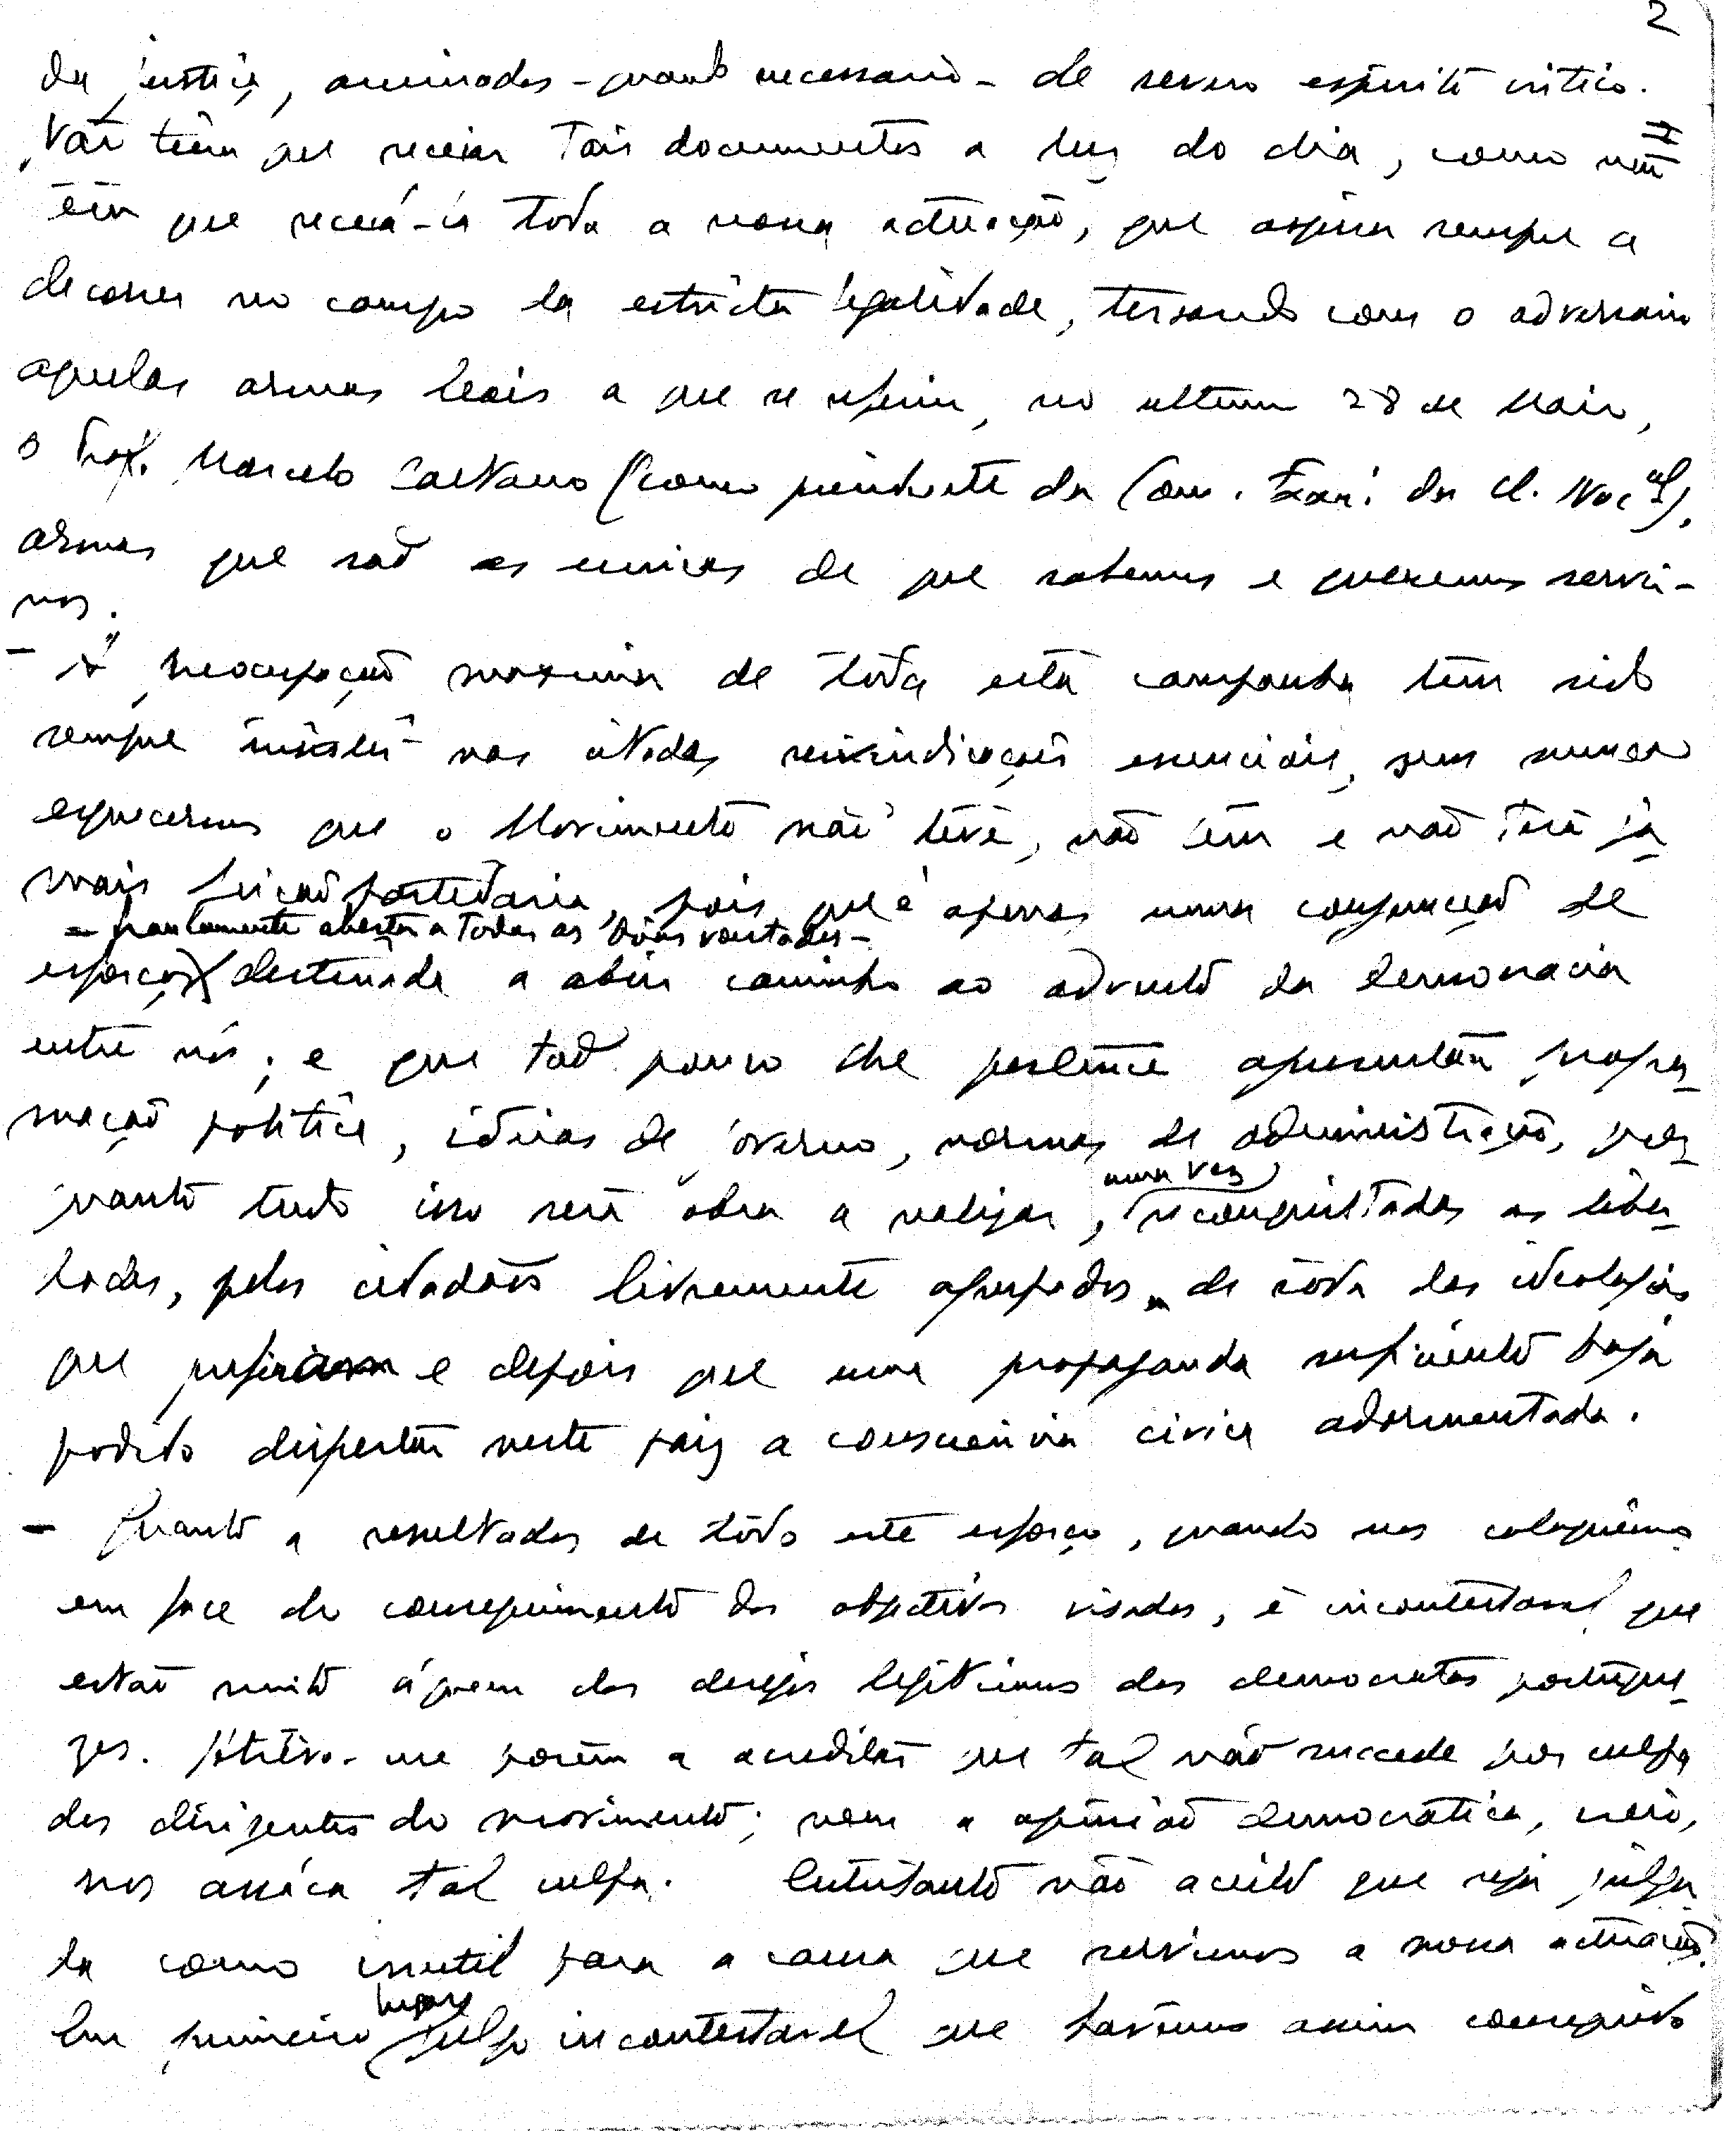 2
da justiça, animados - quando necessario - de severo espirito critico.
Não têem que recear tais documentos a luz do dia, como não
têem que receá-la toda a nossa actuação, que aspira sempre a
decorrer no campo da estricta legalidade, tersando com o adversario
aquelas armas leais a que se referiu, no ultimo 28 de Maio,
o Prof. Marcelo Caetano (como presidente da Com. Exec. da U. Nac.al),
armas que são as unicas de que sabemos e queremos servir-
nos.
- A preocupação maxima de toda esta campanha tem sido
sempre insistir nas citadas reivindicações essenciais, sem nunca
esquecermos que o Movimento não teve, não tem e não terá já-
mais feição partidaria, pois que é apenas uma conjunção de
- francamente aberta a todas as bôas vontades -
esforços destinada a abrir caminho ao advento da democracia
entre nós; e que tão pouco lhe pertence apresentar progra-
mação politica, ideias de governo, normas de administração, por-
quanto tudo isso será obra a realizar, uma vez reconquistadas as liber-
dades, pelos cidadãos livremente agrupados em de roda das ideologias
que prefiram e depois que uma propaganda suficiente haja
podido despertar neste paiz a consciencia civica adormentada.
- Quanto a resultados de todo este esforço, quando nos coloquêmos
em face do conseguimento dos objectivos visados, é incontestavel que
estão muito áquem dos desejos legitimos dos democratas portugue-
zes. Atrevo-me porém a acreditar que tal não succede por culpa
dos dirigentes do movimento; nem a opinião democratica, creio,
nos assáca tal culpa. Entretanto não aceito que seja julga-
da como inutil para a causa que servimos a nossa actuação.
Em primeiro lugar julgo incontestavel que havêmos assim conseguido